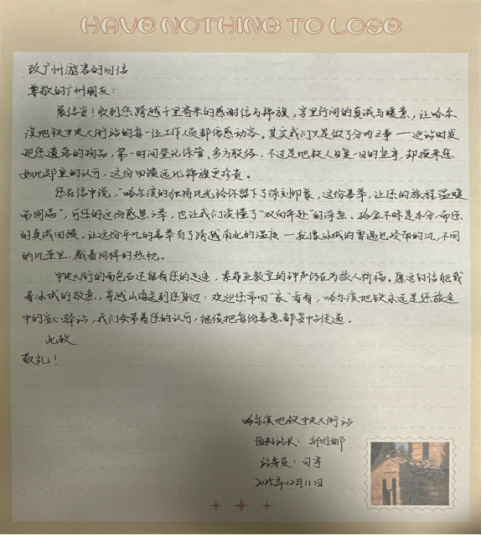 HAVE NOTHING TO LOSE
致广州游客的回信
尊敬的广州朋友：
展信喜！收到您跨越千里寄来的感谢信与锦旗，字里行间的真诚与暖意，让哈尔
滨地铁中央大街站的每一位工作人员都倍感动容。其实我们只是做了分内之事——巡站时发
现您遗落的物品，第一时间登记保管、多方联络，不过是地铁人日复一日的坚守，却换来您
如此郑重的认可，这份回馈远比锦旗更珍贵。
您在信中说，“哈尔滨的独特风光给你留下了深刻印象，这份善举，让您的旅程温暖
而圆满”，可您的这份感恩之举，也让我们读懂了“双向奔赴”的深意。拾金不昧是本分，而您
的真诚回馈，让这份平凡的善举有了跨越南北的温度——就像冰城的雪遇上岭南的风，不同
的风景里，藏着同样的热忱。
中央大街的面包石还留有您的足迹，索菲亚教堂的钟声仍在为旅人祈福。愿这封信能载
着冰城的敬意，穿越山海送到您身边：欢迎您常回“家”看看，哈尔滨地铁永远是您旅途
中的安心驿站，我们会带着您的认可，继续把每份善意都妥帖传递。
此致
敬礼！
哈尔滨地铁中央大街站
值班站长：
站务员：司宇
2025年12月11日